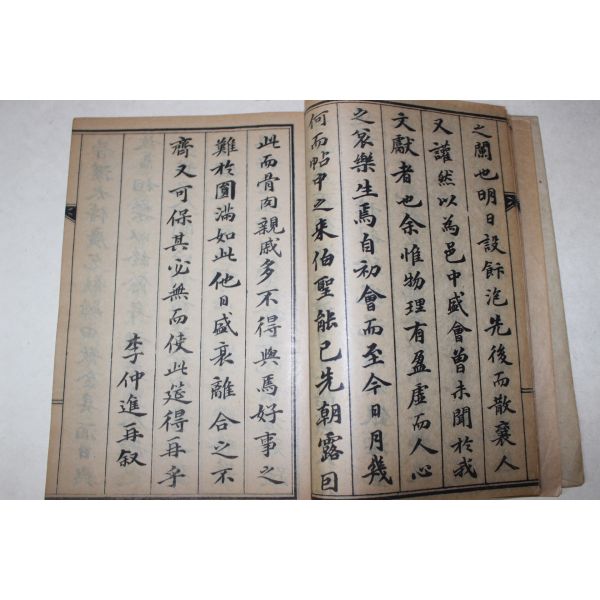 之闌也明日設餘泡先後而散襄人
又讙然以為邑中盛會曾未聞於我
文獻者也余惟物理有盈虛而人心
之哀樂生焉自初會而至今日月幾
何而帖中之來伯聖能已先朝露曰
此而骨肉親戚多不得與焉好事之
難於圓滿如此他日盛衰離合之不
齊又可保其必無而使此筵得再乎
李仲進再叙